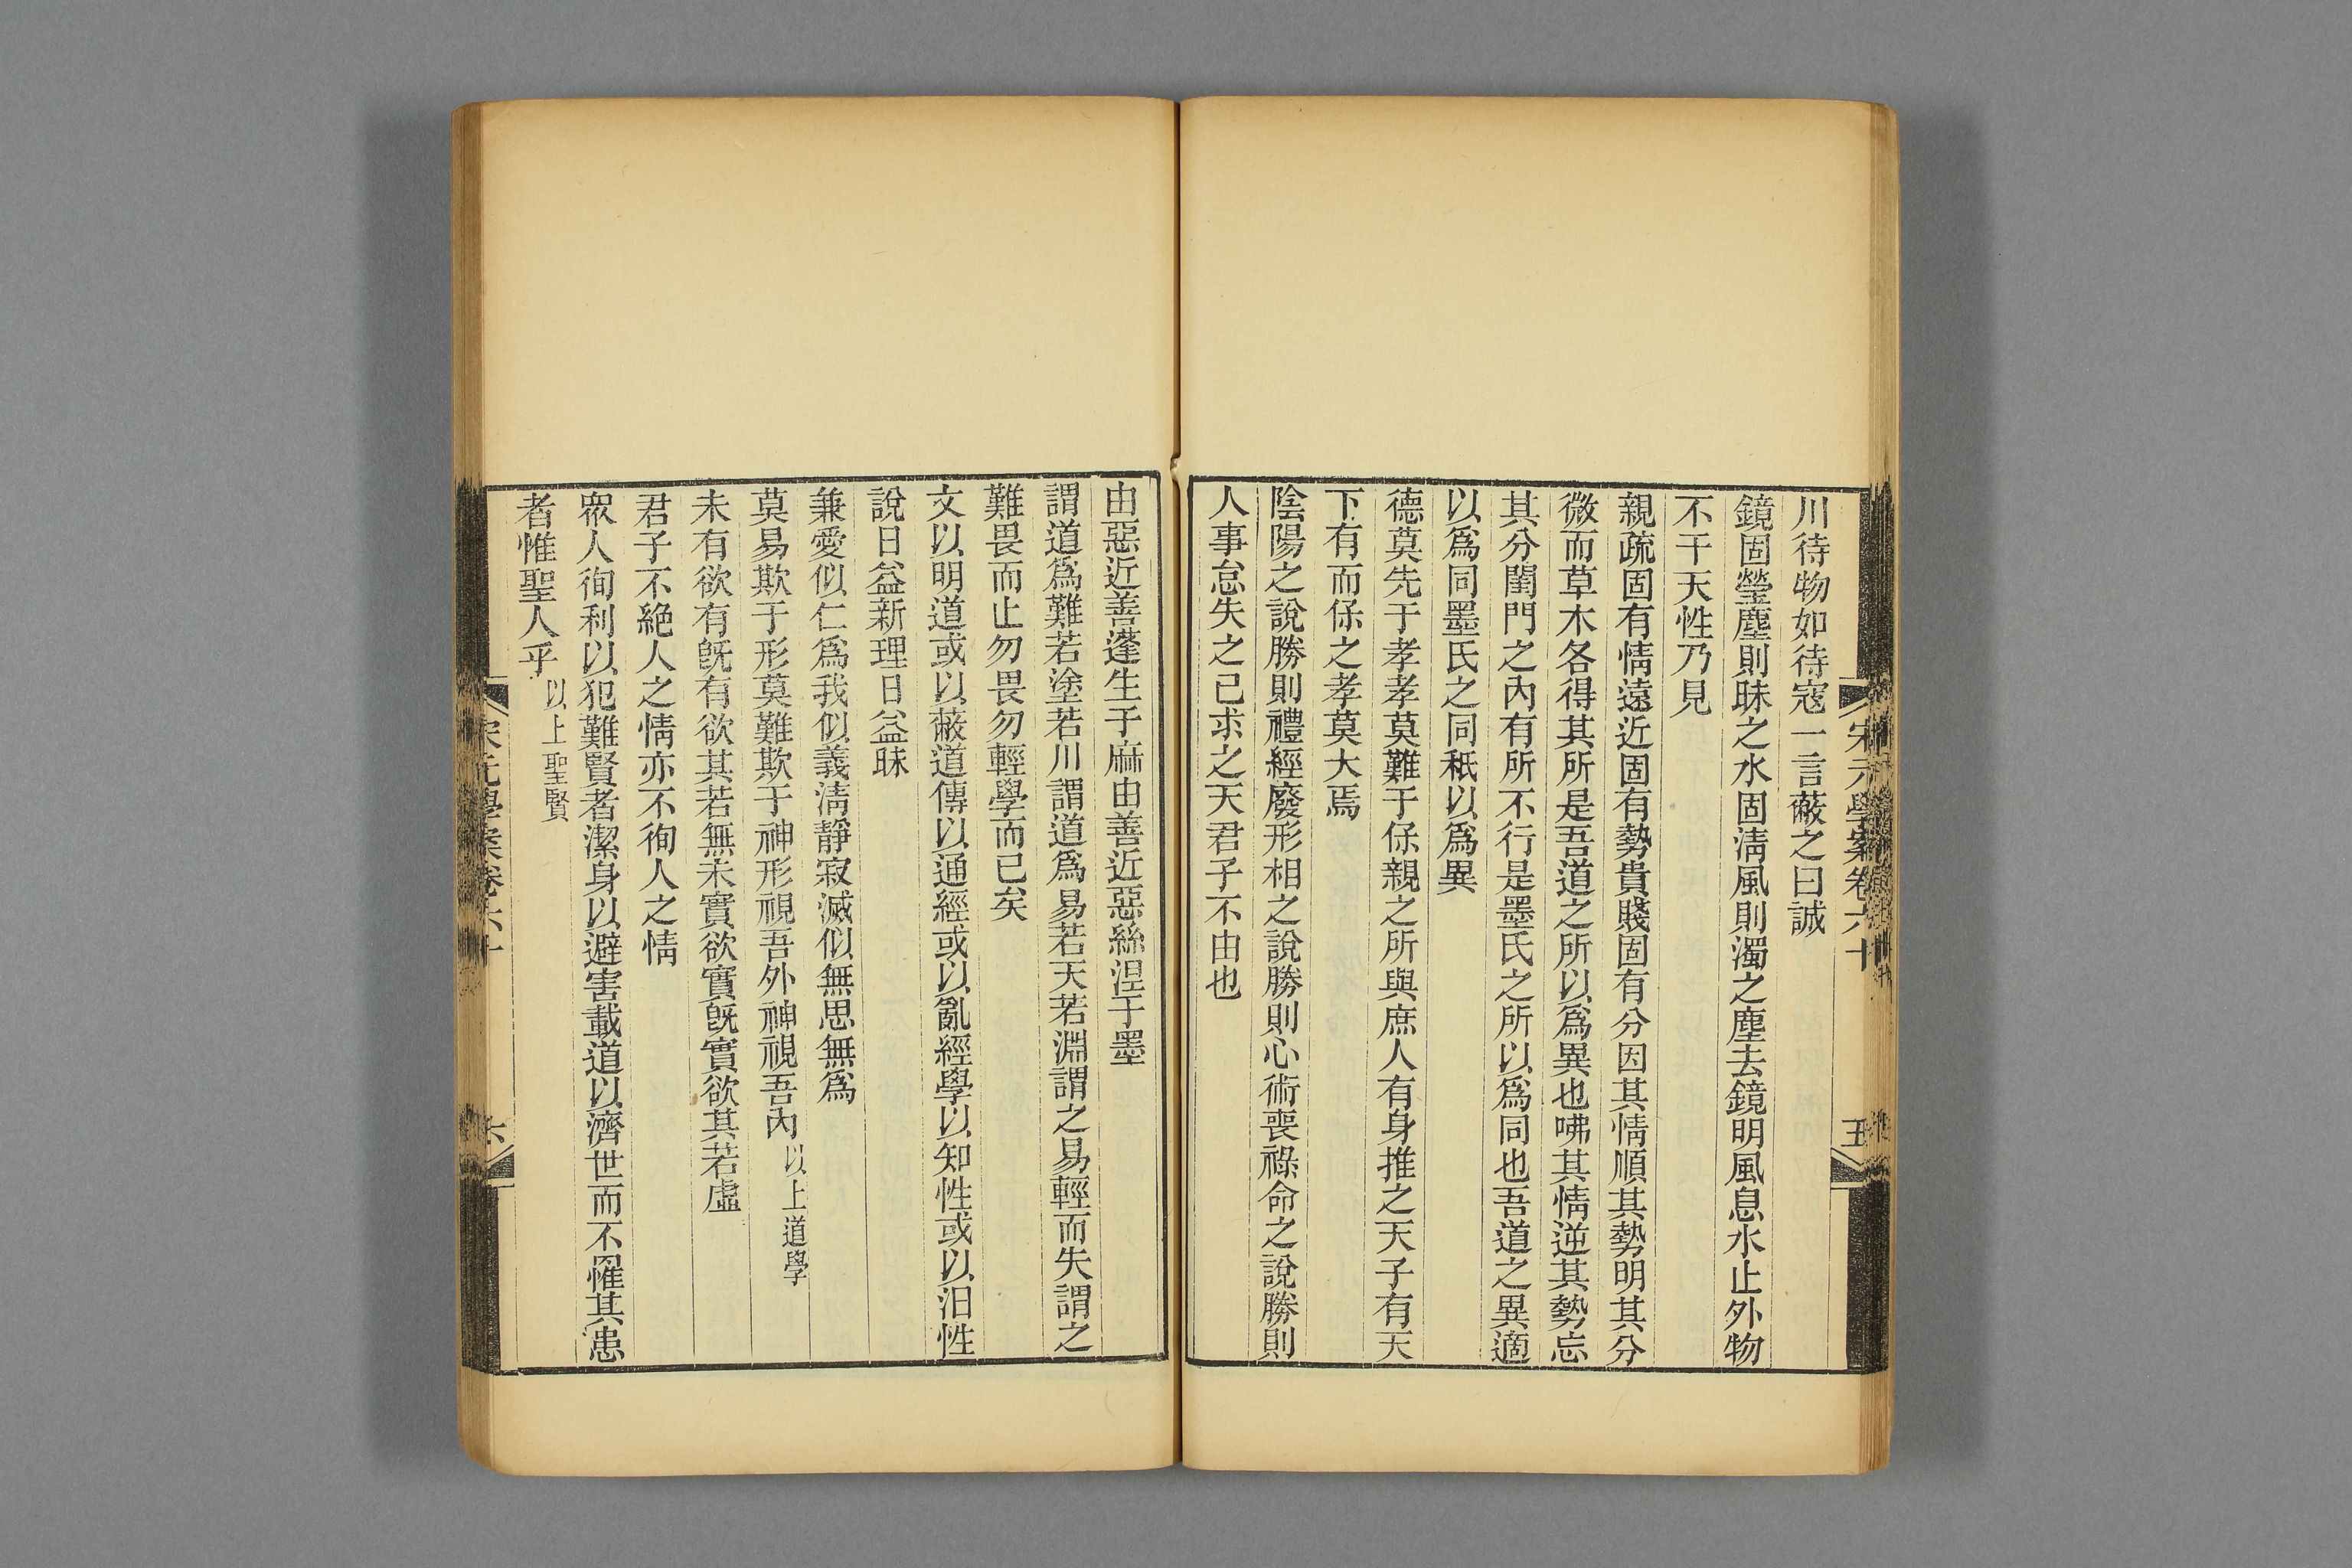 宋元學案卷六十
五
川待物如待寇一言蔽之曰誠
鏡固瑩塵則昧之水固淸風則濁之塵去鏡明風息水止外物
不干天性乃見
親疏固有情遠近固有勢貴賤固有分因其情順其勢明其分
微而草木各得其所是吾道之所以爲異也咈其情逆其勢忘
其分閨門之內有所不行是墨氏之所以爲同也吾道之異適
以爲同墨氏之同秖以爲異
德莫先于孝孝莫難于保親之所與庶人有身推之天子有天
下有而保之孝莫大焉
陰陽之說勝則禮經廢形相之說勝則心術喪祿命之說勝則
人事怠失之已求之天君子不由也
由惡近善蓬生于麻由善近惡絲涅于墨
謂道爲難若塗若川謂道爲易若天若淵謂之易輕而失謂之
難畏而止勿畏勿輕學而已矣
文以明道或以蔽道傳以通經或以亂經學以知性或以汨性
說日益新理日益昧
兼愛似仁爲我似義淸靜寂滅似無思無爲
莫易欺于形莫難欺于神形視吾外神視吾內以上道學
未有欲有旣有欲其若無未實欲實旣實欲其若虛
君子不絕人之情亦不徇人之情
眾人徇利以犯難賢者潔身以避害載道以濟世而不罹其患
者惟聖人乎以上聖賢
宋元學案卷六十
六